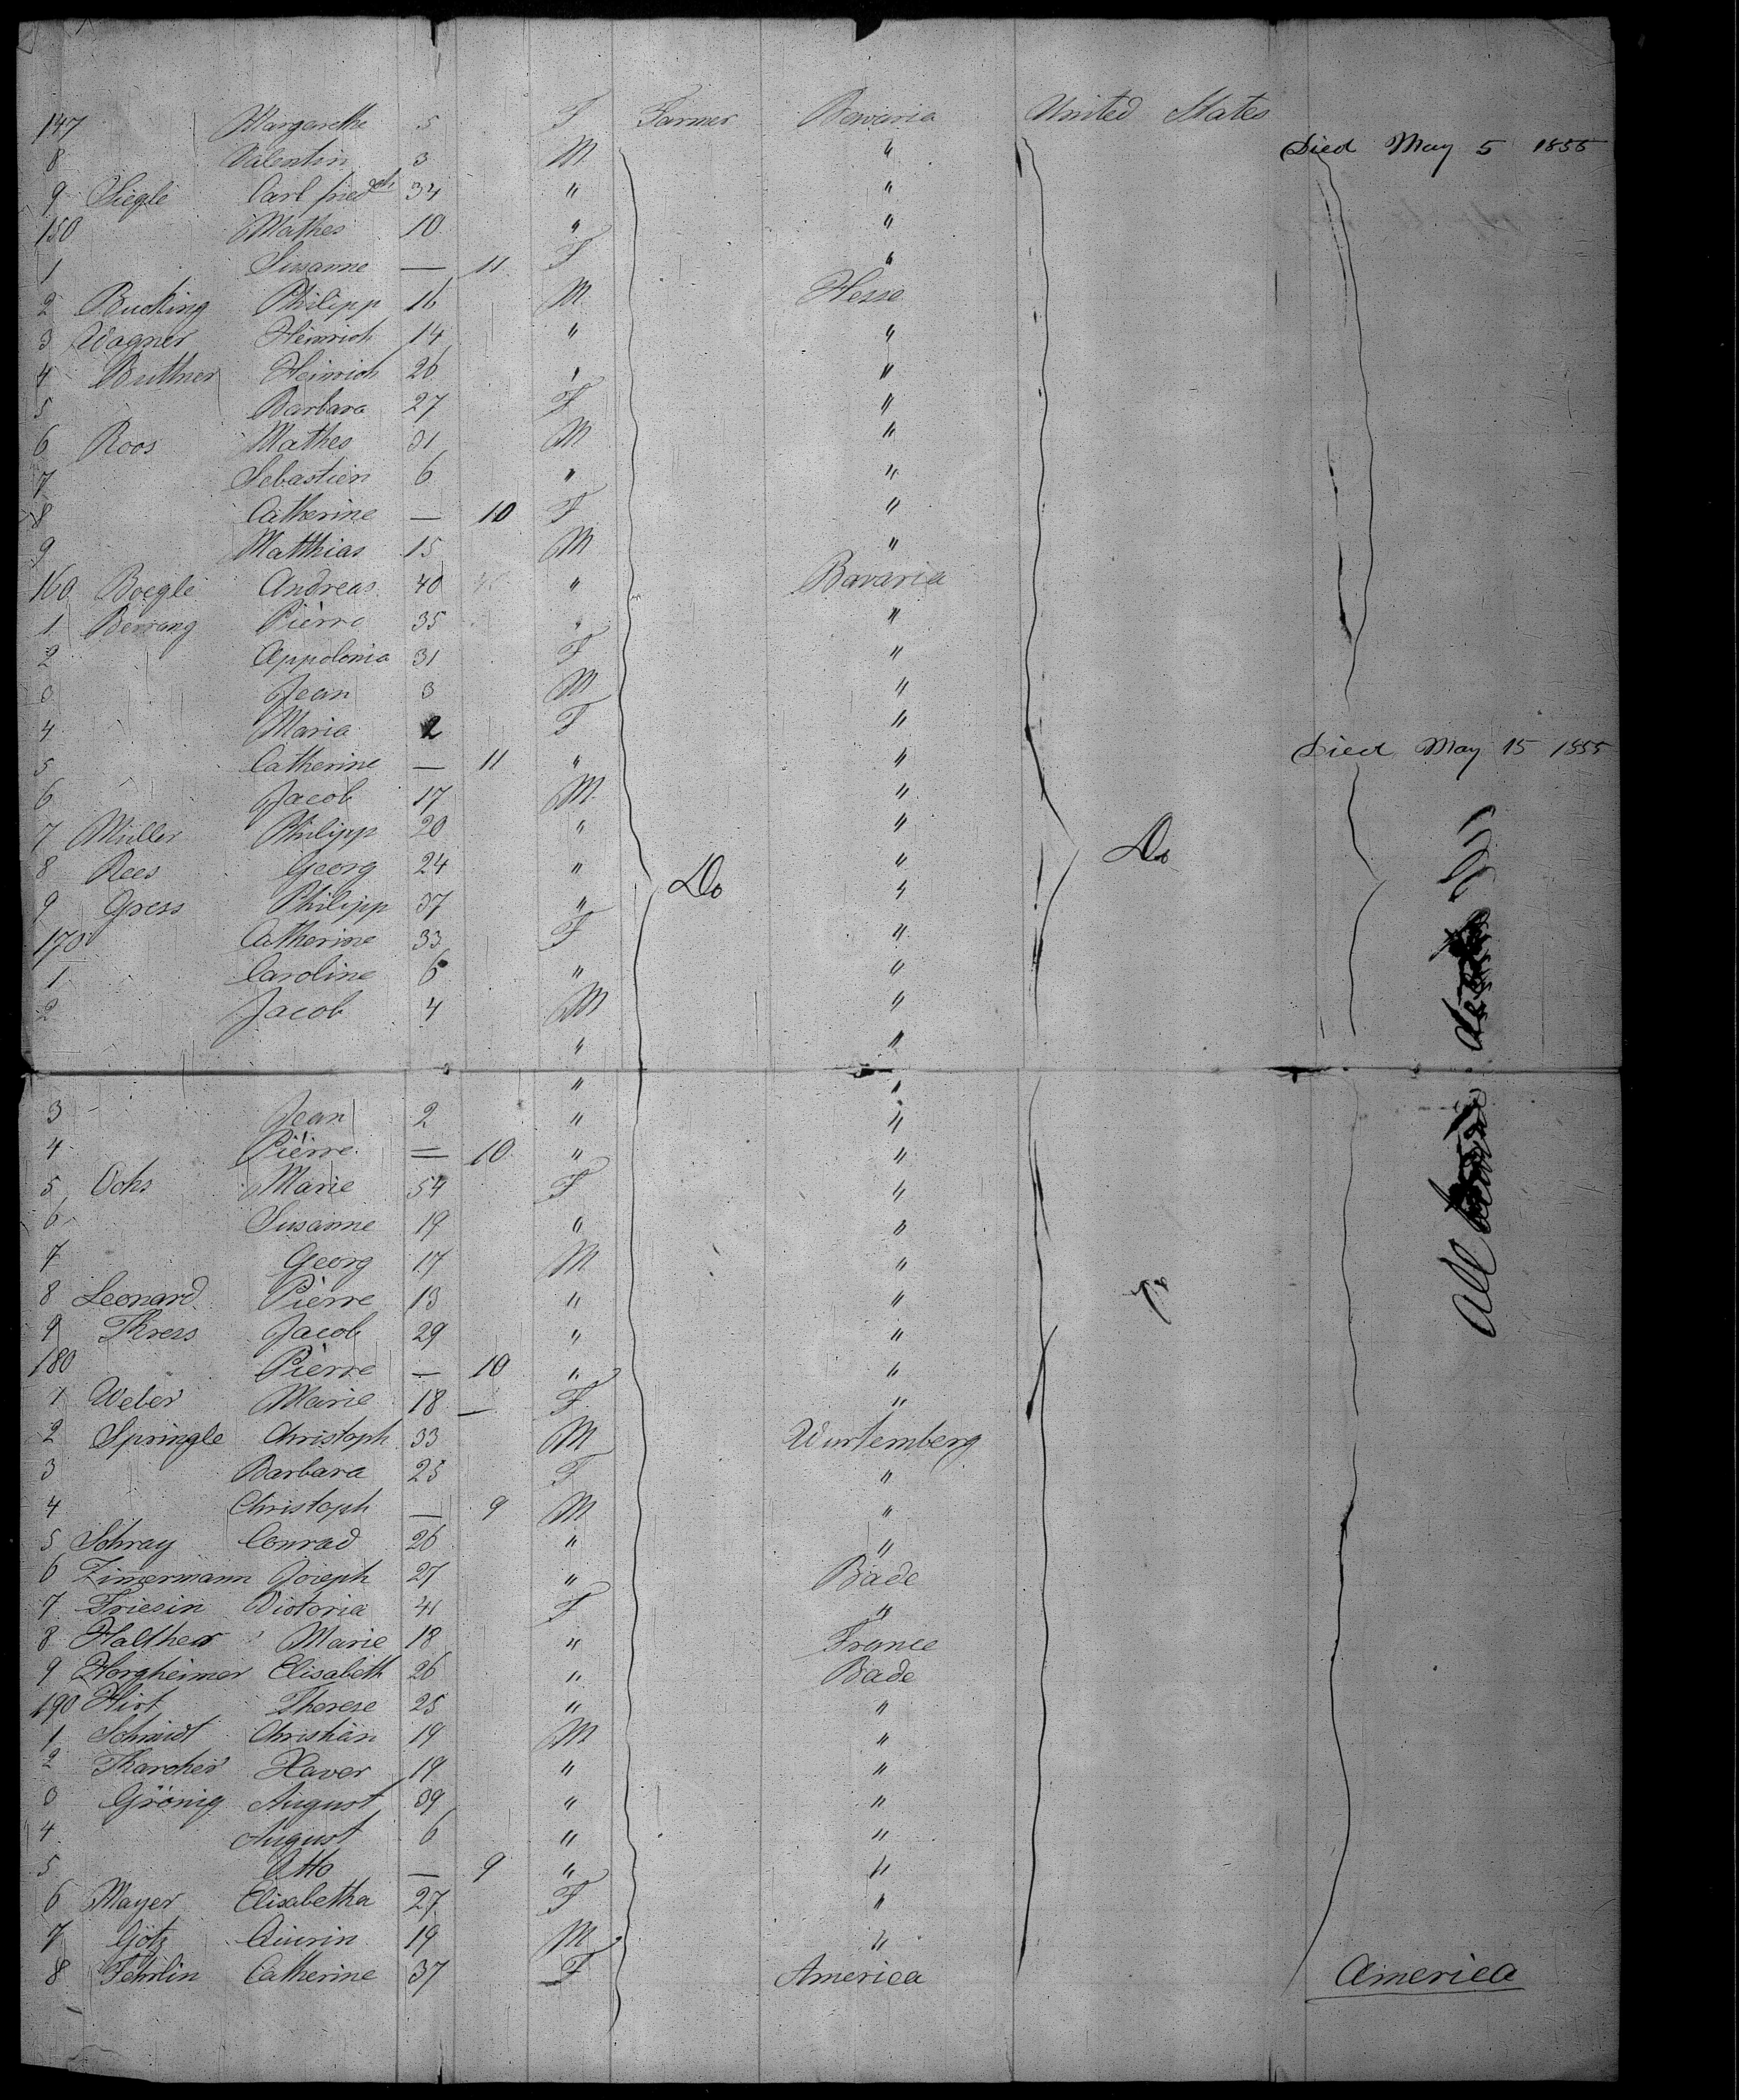 147 Margarethe 5 F Farmer Bavaria United States
8 Valentin 3 M " Died May 5 1855
9 Siegle Carl fried ch 34 " "
150 Mathes 10 " "
1 Susanne — 11 F "
2 Bucking Philipp 16 M Hesse
3 Wagner Heinrich 14 " "
4 Buthner Heinrich 26 " "
5 Barbara 27 F "
6 Roos Mathes 31 M "
7 Sebastien 6 " "
8 Catherine — 10 F "
9 Matthias 15 M "
160 Boegle Andreas 40 " Bavaria
1 Berrang Pierre 35 " "
2 Appolonia 31 F "
3 Jean 3 M "
4 Maria 2 F "
5 Catherine — 11 " " Died May 15 1855
6 Jacob 17 M "
7 Müller Philipp 20 " "
8 Rees Georg 24 " " Do
9 Gress Philipp 37 " Do "
170 Catherine 33 F "
1 Caroline 6 " "
2 Jacob 4 M "
" "
" "
3 Jean 2 " "
4 Pierre — 10 " "
5 Ochs Marie 54 F "
6 Susanne 19 " "
7 Georg 17 M "
8 Leonard Pierre 13 " "
9 Kress Jacob 29 " "
180 Pierre — 10 " "
1 Weber Marie 18 — F "
2 Springle Christoph 33 M Wurtemberg
3 Barbara 25 F "
4 Christoph — 9 M "
5 Schray Conrad 26 " "
6 Zimermann Joseph 27 " Bade
7 Friesin Victoria 41 F "
8 Halther Marie 18 " France
9 Horgheimer Elisabeth 26 " Bade
190 Hirt Therese 25 " "
1 Schmidt Christian 19 M "
2 Karcher Xaver 19 " "
3 Grönig August 39 " "
4 August 6 " "
5 Otto — 9 " "
6 Mayer Elisabetha 27 F "
7 Götz Quirin 19 M "
8 Fehrlin Catherine 37 F America America
All